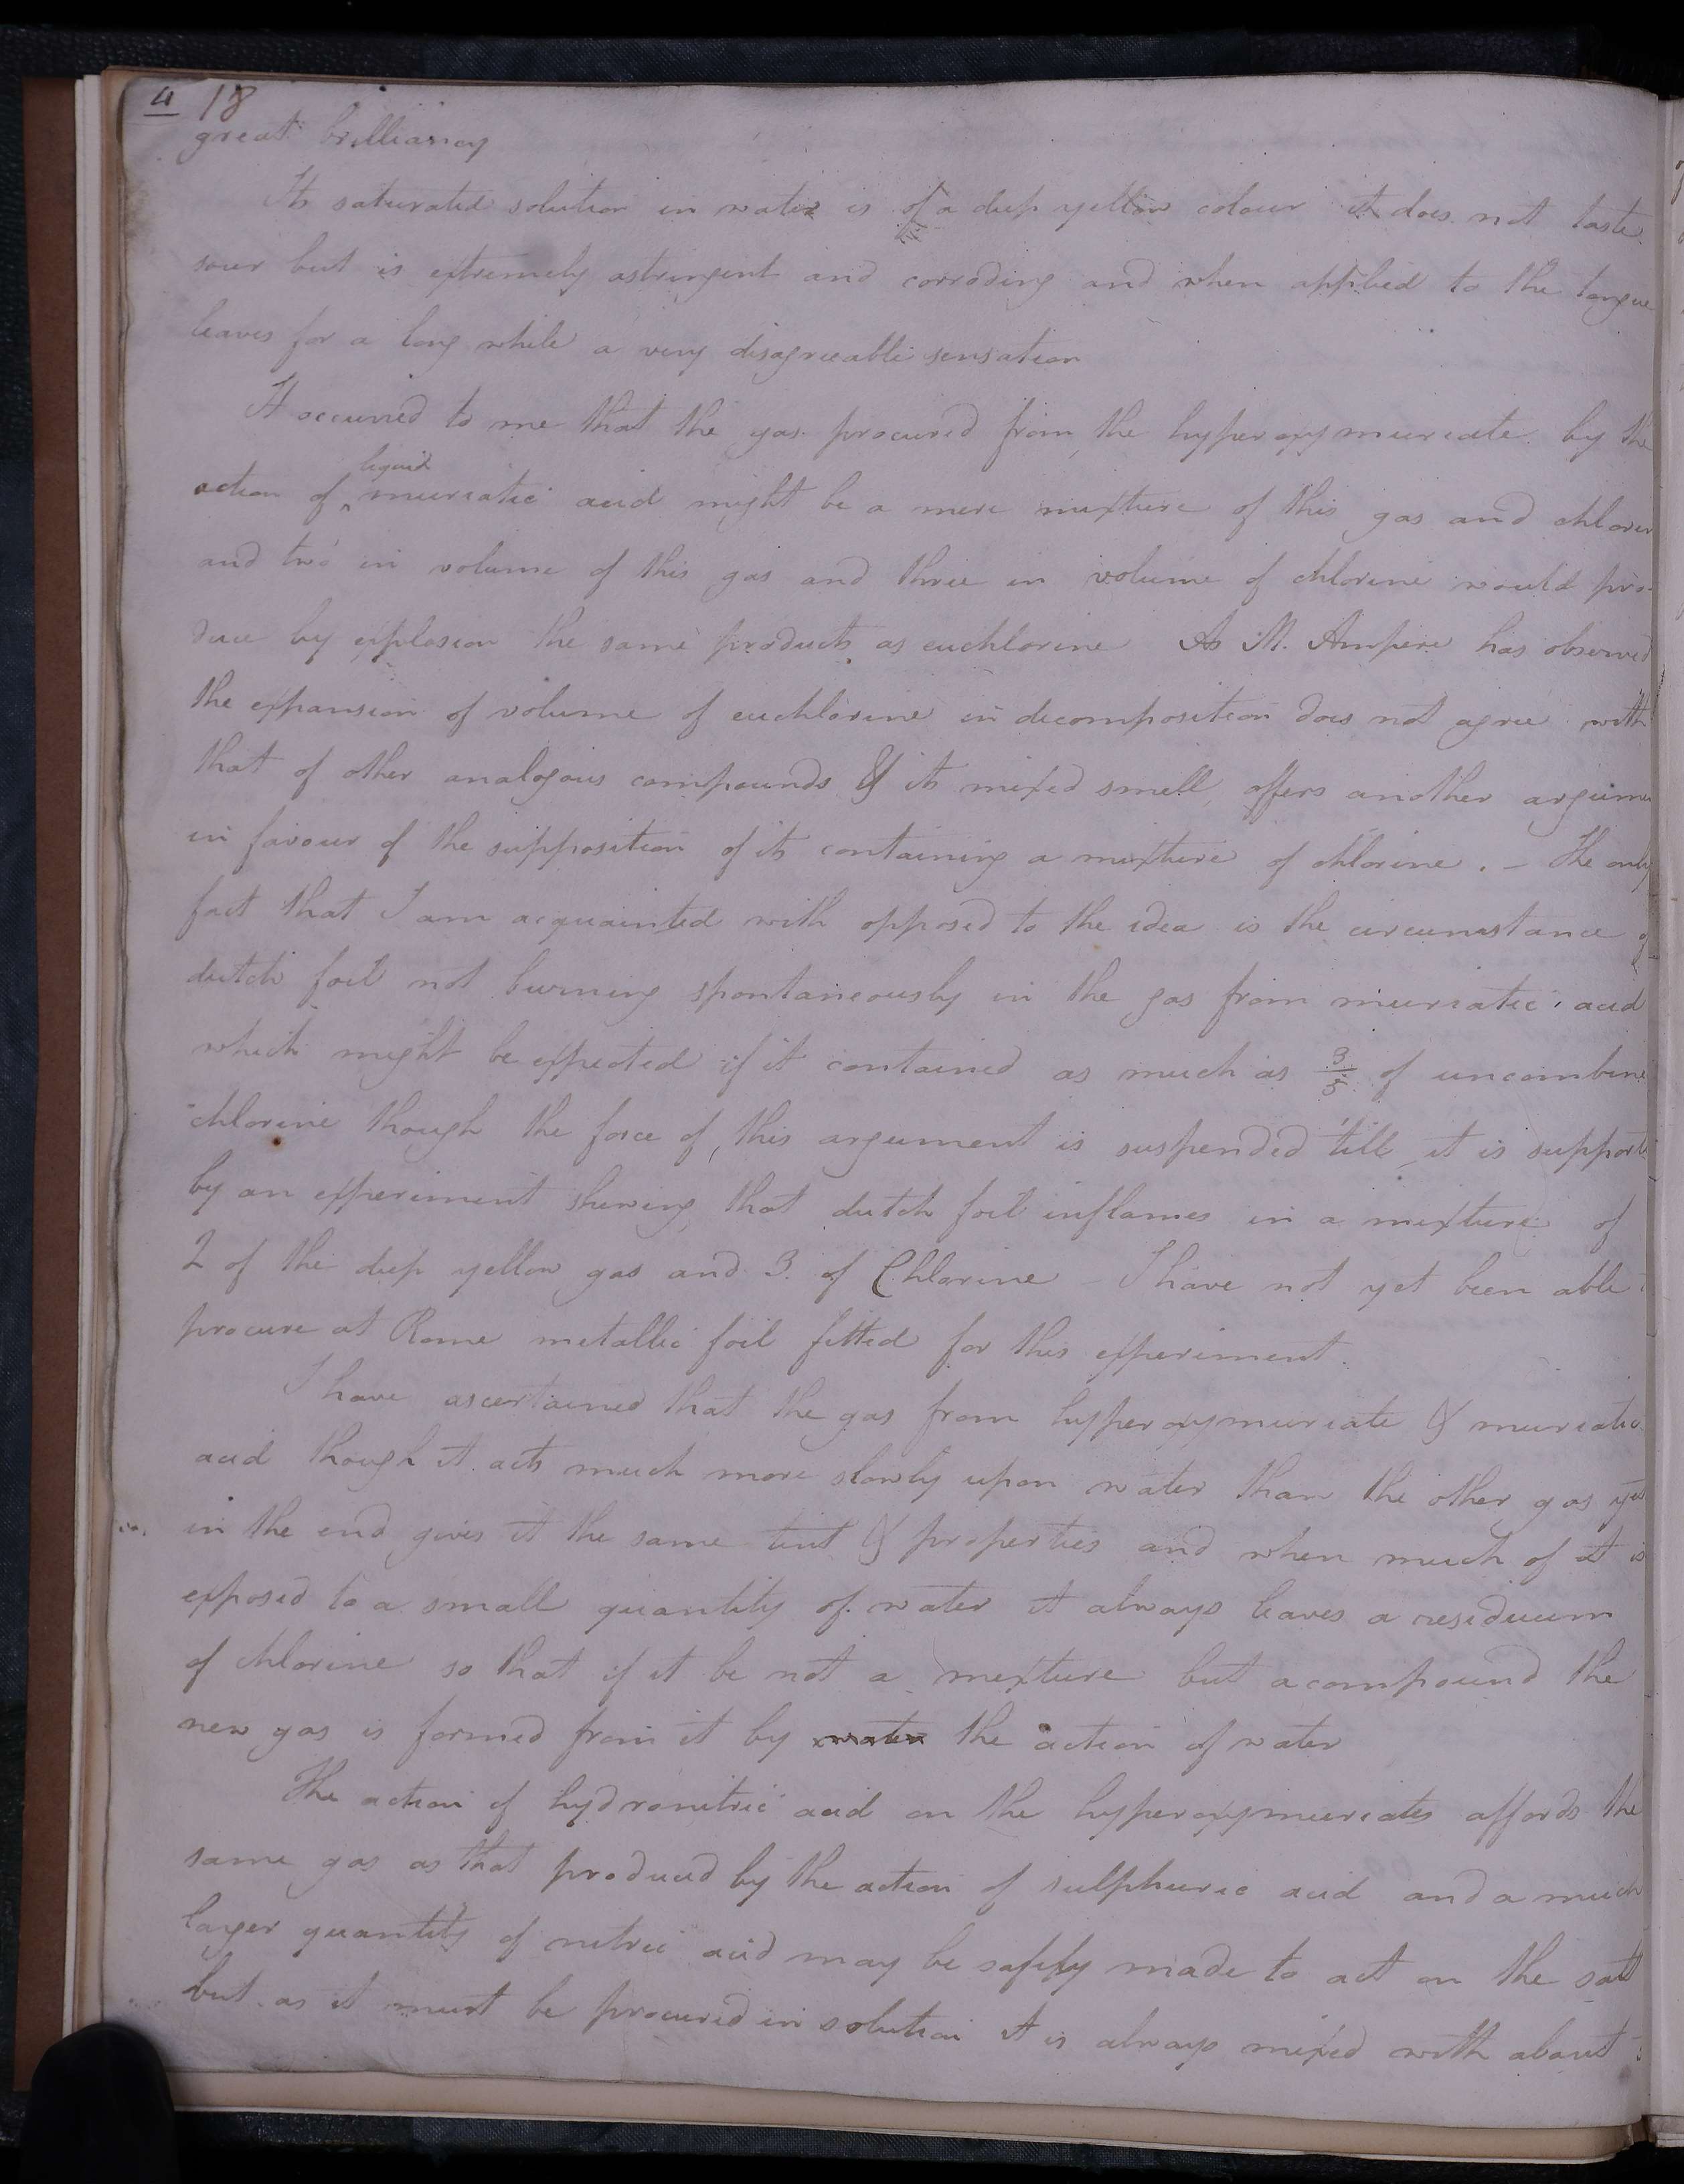 4 18
great brilliancy
Its saturated solution in water is of a deep yellow colour it does not taste
sour but is extremely astringent and corroding and when applied to the tongue
leaves for a long while a very disagreeable sensation
It occurred to me that the gas procured from the hyperoxymuriate by the
liquid
action of ^ muriatic acid might be a mere mixture of this gas and chlorin
and two in volume of this gas and three in volume of chlorine would pro-
duce by explosion the same products as euchlorine As M. Ampere has observed
the expansion of volume of euchlorine in decomposition does not agree with
that of other analogous compounds & its mixed smell offers another argume
in favour of the supposition of its containing a mixture of chlorine . - The only
fact that I am acquainted with opposed to the idea is the circumstance of
dutch foil not burning spontaneously in the gas from muriatic acid
which might be expected if it contained as much as 3/5 of uncombine
chlorine though the force of this argument is suspended till it is supporte
by an experiment shewing that dutch foil inflames in a mixture of
2 of the deep yellow gas and 3 of Chlorine - I have not yet been able
procure at Rome metallic foil fitted for this experiment.
I have ascertained that the gas from hyperoxymuriate & muriatic
acid though it acts much more slowly upon water than the other gas yet
in the end gives it the same tint & properties and when much of it is
exposed to a small quantity of water it always leaves a residuum
of chlorine so that if it be not a mixture but a compound the
new gas is formed from it by water the action of water
The action of hydronitric acid on the hyperoxymuriates affords the
same gas as that produced by the action of sulphuric acid and a much
larger quantity of nitric acid may be safely made to act on the salt
but as it must be procured in solution it is always mixed with about